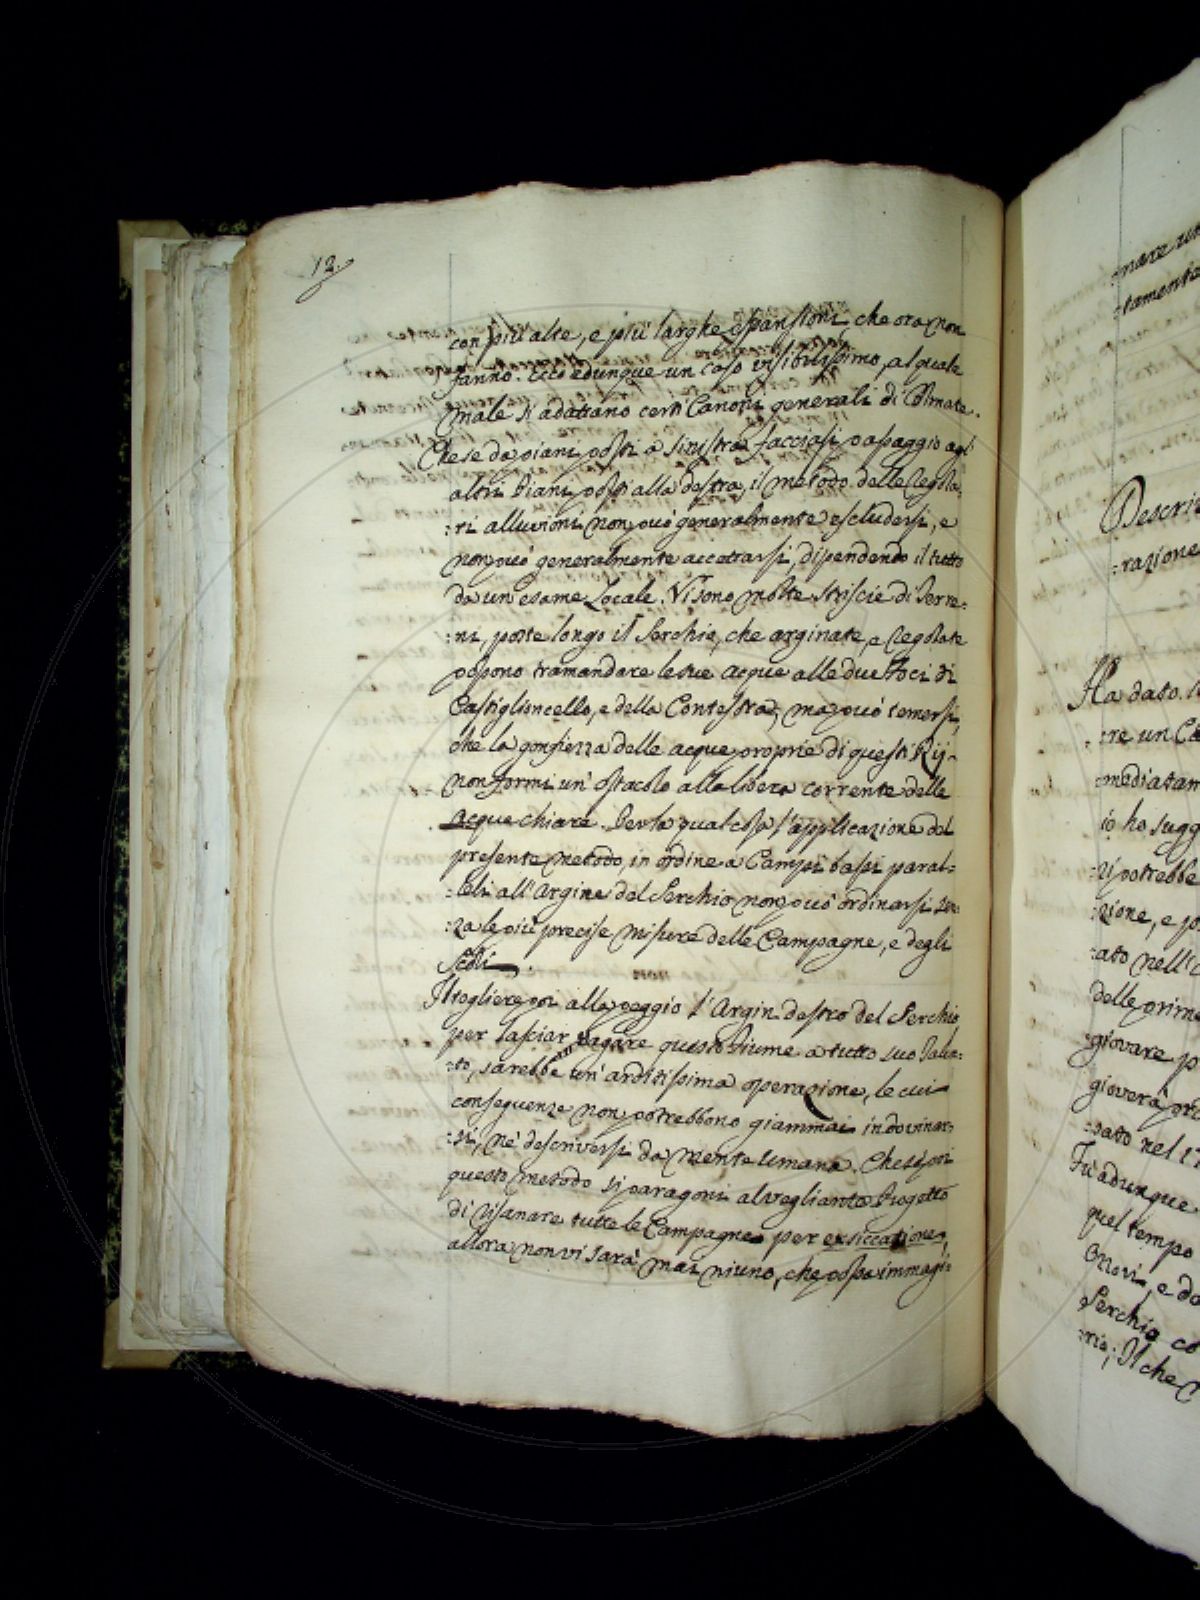 12.
con più alte, e più larghe espansioni, che ora non
fanno. Ecco adunque un caso visibilissimo, al quale
male si adattano certi Canoni generali di Colmate.
Che se da piani posti a sinistra facciasi passaggio agl'
altri Piani posti alla destra, il metodo delle regola-
:ri alluvioni non può generalmente escludersi, e
non può generalmente accettarsi, dipendendo il tutto
da un esame Locale. Vi sono molte striscie di Terre:
:ni, poste longo il Serchio, che arginate, e regolate
possono tramandare le sue acque alle due Foci di
Castiglioncello, e della Contessora, ma può temersi,
che la gonfiezza delle acque proprie di questi Rij
non formi un' ostacolo alla libera corrente delle
acque chiare. Per la qual cosa l'applicazione del
presente metodo, in ordine a Campi bassi paral:
:leli all'Argine del Serchio non può ordinarsi sen:
:za le più precise misure delle Campagne, e degli
Scoli.
Il togliere poi alla peggio l'Argin destro del Serchio
per lasciar vagare questo Fiume a tutto suo Talen:
:to, sarebbe un' arditissima operazione, le cui
conseguenze non potrebbono giammai indovinar:
:si, nè descriversi da mente umana. Che se poi
questo metodo si paragoni al vegliante Progetto
di risanare tutte le Campagne per exsiccationem,
allora non vi sarà mai niuno, che possa immagi:
:nare un
:tamente
Descriz
:razione
Ha dato
:re un Ca
:mediatam
io ho sugg
potrebbe
:zione, e
:ato nell'
delle prime
giovare p
gioverà
:sato nel 17
Fù adunque
quel tempo
e do
Serchio co
:rio; Il che